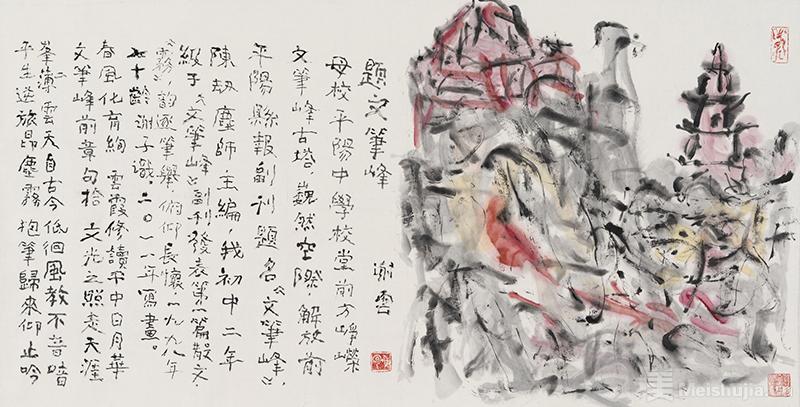 題文筆峰 謝雲
母校平陽中學校堂前方崢嶸
文筆峰古塔，巍然空際，解放前
平陽縣報副刊題名《文筆峰》，
陳劫塵師主編，我初中二年
級于《文筆峰》副刊發表第一篇散文
《霧》韵逐筆舉俯仰長懷，一九九八年
七十齡謝子識。二〇一八年寫畫。
春風化育絢雲霞修讀平中日月華
文筆峰前章句拾文光之照天涯
峯薄雲天自古今低徊風教不音喑
平生逆旅昂塵霧抱筆歸來仰止吟
Meishujia